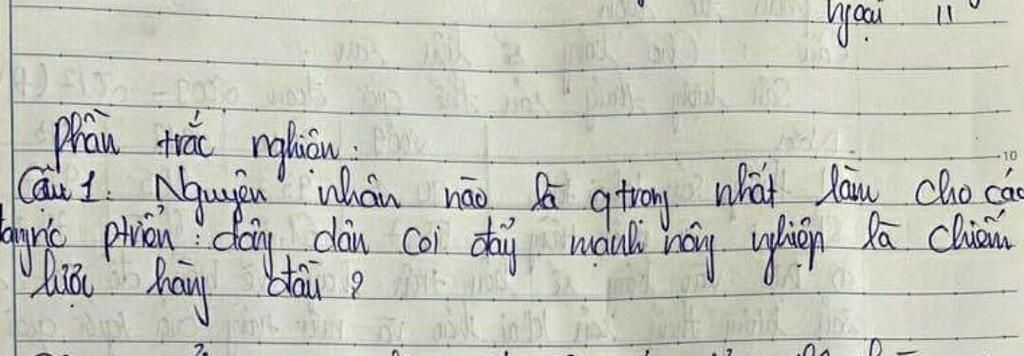 ngoại 11
phần trắc nghiên:
Câu 1: Nguyên nhân nào là qtrong nhất làm cho các
ptriển: đông dân coi đẩy mạnh nông nghiệp là chiến
lược hàng đầu?